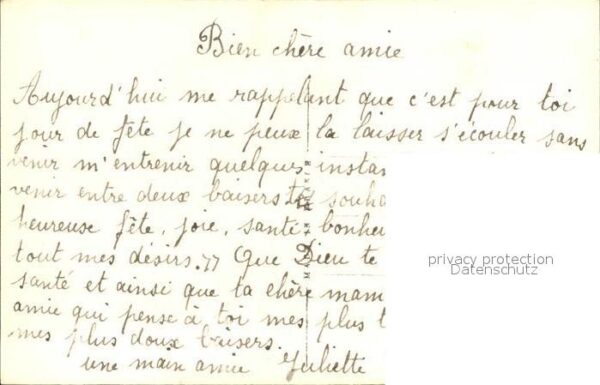 Bien chère amie
Aujourd'hui me rappelant que c'est pour toi
jour de fête je ne peux la laisser s'écouler sans
venir m'entrenir quelques instan
venir entre deux baisers te souha
heureuse fête, joie, santé, bonheu
tout mes désirs. Que Dieu te
santé et ainsi que ta chère mam
amie qui pense à toi mes plus t
mes plus doux baisers.
une main amie Juliette
privacy protection
Datenschutz